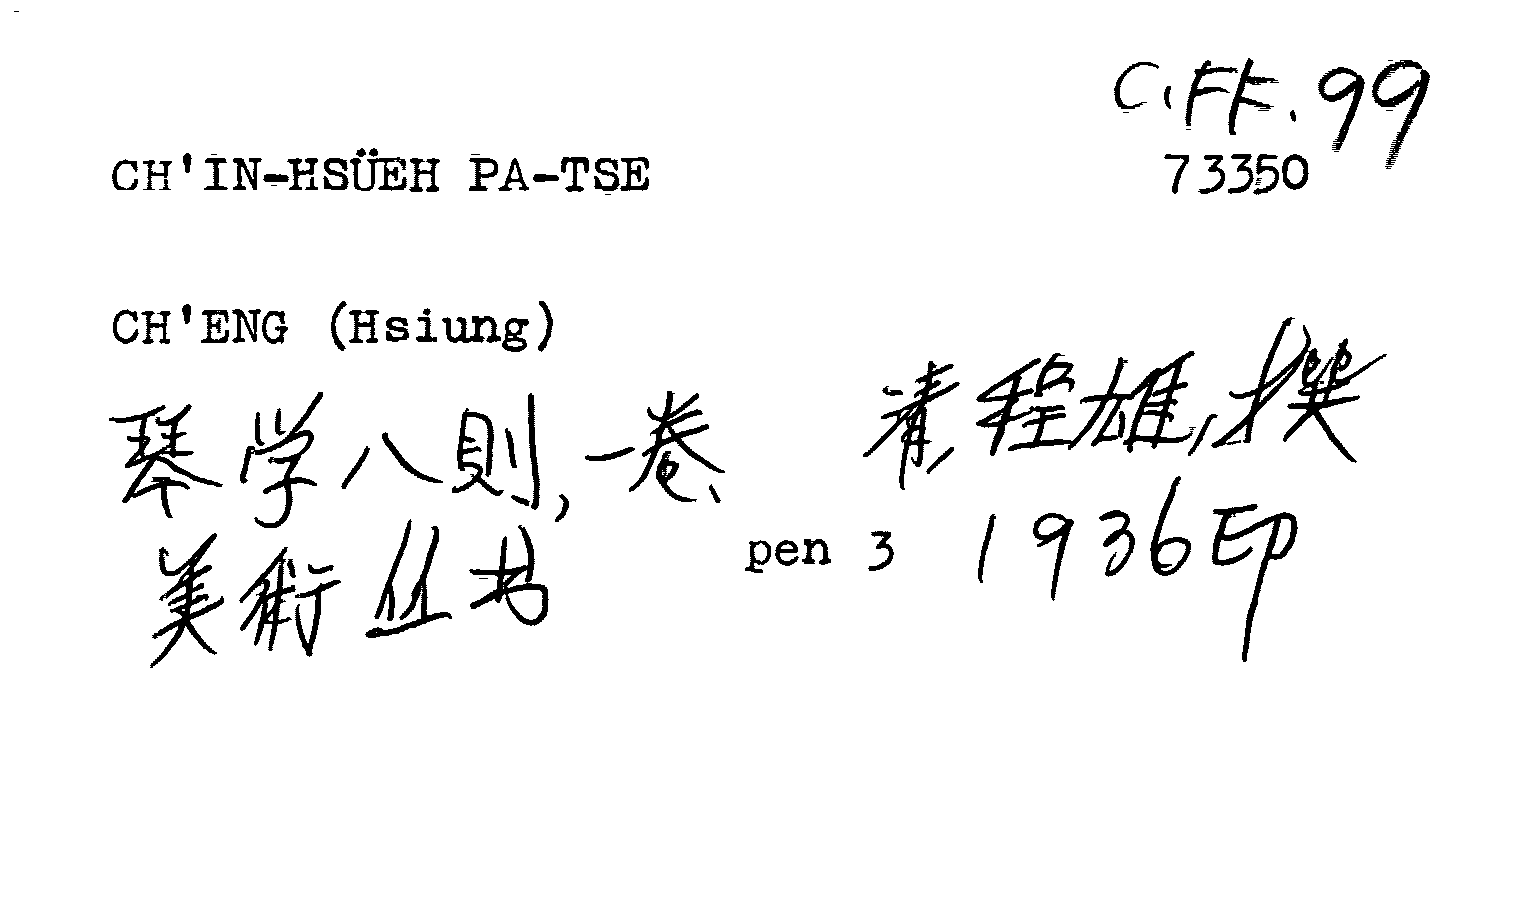 C.FF.99
73350
CH'IN-HSÜEH PA-TSE
CH'ENG (Hsiung)
琴学八則,一卷、 清,程雄,撰
美術丛书 pen 3 1936印